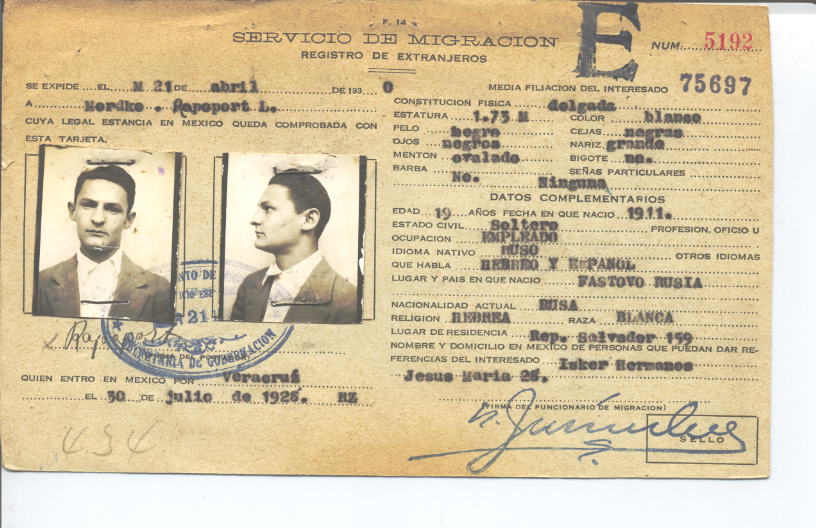 F. 14
SERVICIO DE MIGRACION
REGISTRO DE EXTRANJEROS
E
NUM. 5192
75697
SE EXPIDE EL M 21 DE abril DE 193 0
A Mordko . Rapoport L.
CUYA LEGAL ESTANCIA EN MEXICO QUEDA COMPROBADA CON
ESTA TARJETA.
QUIEN ENTRO EN MEXICO POR Veracruz
EL 30 DE julio de 1928. RZ
434
MEDIA FILIACION DEL INTERESADO
CONSTITUCION FISICA delgada
ESTATURA 1.73 M COLOR blanco
PELO negro CEJAS negras
OJOS negros NARIZ grande
MENTON ovalado BIGOTE no.
BARBA No. SEÑAS PARTICULARES
Ninguna
DATOS COMPLEMENTARIOS
EDAD 19 AÑOS FECHA EN QUE NACIO 1911.
ESTADO CIVIL Soltero PROFESION, OFICIO U
OCUPACION EMPLEADO
IDIOMA NATIVO RUSO OTROS IDIOMAS
QUE HABLA HEBREO Y ESPAÑOL
LUGAR Y PAIS EN QUE NACIO FASTOVO RUSIA
NACIONALIDAD ACTUAL RUSA
RELIGION HEBREA RAZA BLANCA
LUGAR DE RESIDENCIA Rep. Salvador 159
NOMBRE Y DOMICILIO EN MEXICO DE PERSONAS QUE PUEDAN DAR RE-
FERENCIAS DEL INTERESADO Isker Hermanos
Jesus Maria 25.
(FIRMA DEL FUNCIONARIO DE MIGRACION)
SELLO
NTO DE
21
SECRETARIA DE GOBERNACION